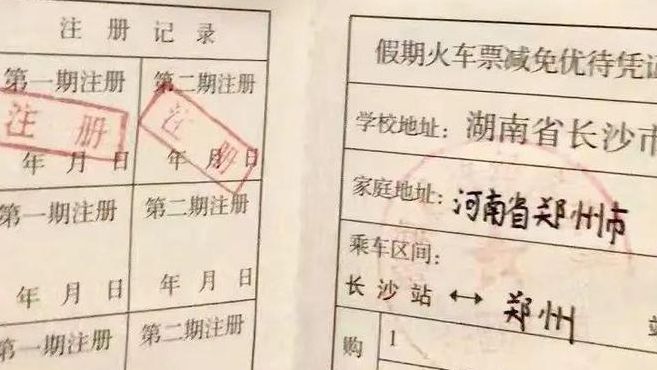 注册记录
第一期注册 第二期注册
注册 注册
年月日 年月日
第一期注册 第二期注册
年月日 年月日
第一期注册 第二期注册
假期火车票减免优待凭证
学校地址：湖南省长沙市
家庭地址：河南省郑州市
乘车区间：
长沙站↔郑州站
购 1